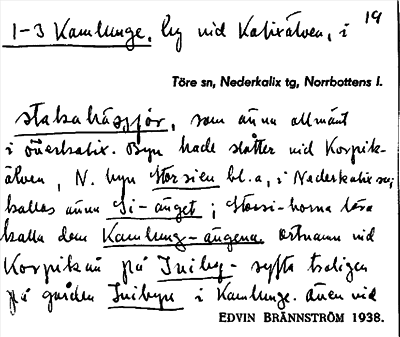 19
1-3 Kamlunge, by vid Kalixälven, i
Töre sn, Nederkalix tg, Norrbottens l.
stakahässjor, som ännu allmänt
i överkalix. Byn hade slåtter vid Korpik-
älven, N. byn Storsien bl.a., i Nederkalix sn;
kallas ännu Si-änget; Storsi-borna lära
kalla dem Kamlung-ängena. ortnamn vid
Korpikån på Iniby- syfta troligen
på gården Inibyn i Kamlunge. även vid
EDVIN BRÄNNSTRÖM 1938.